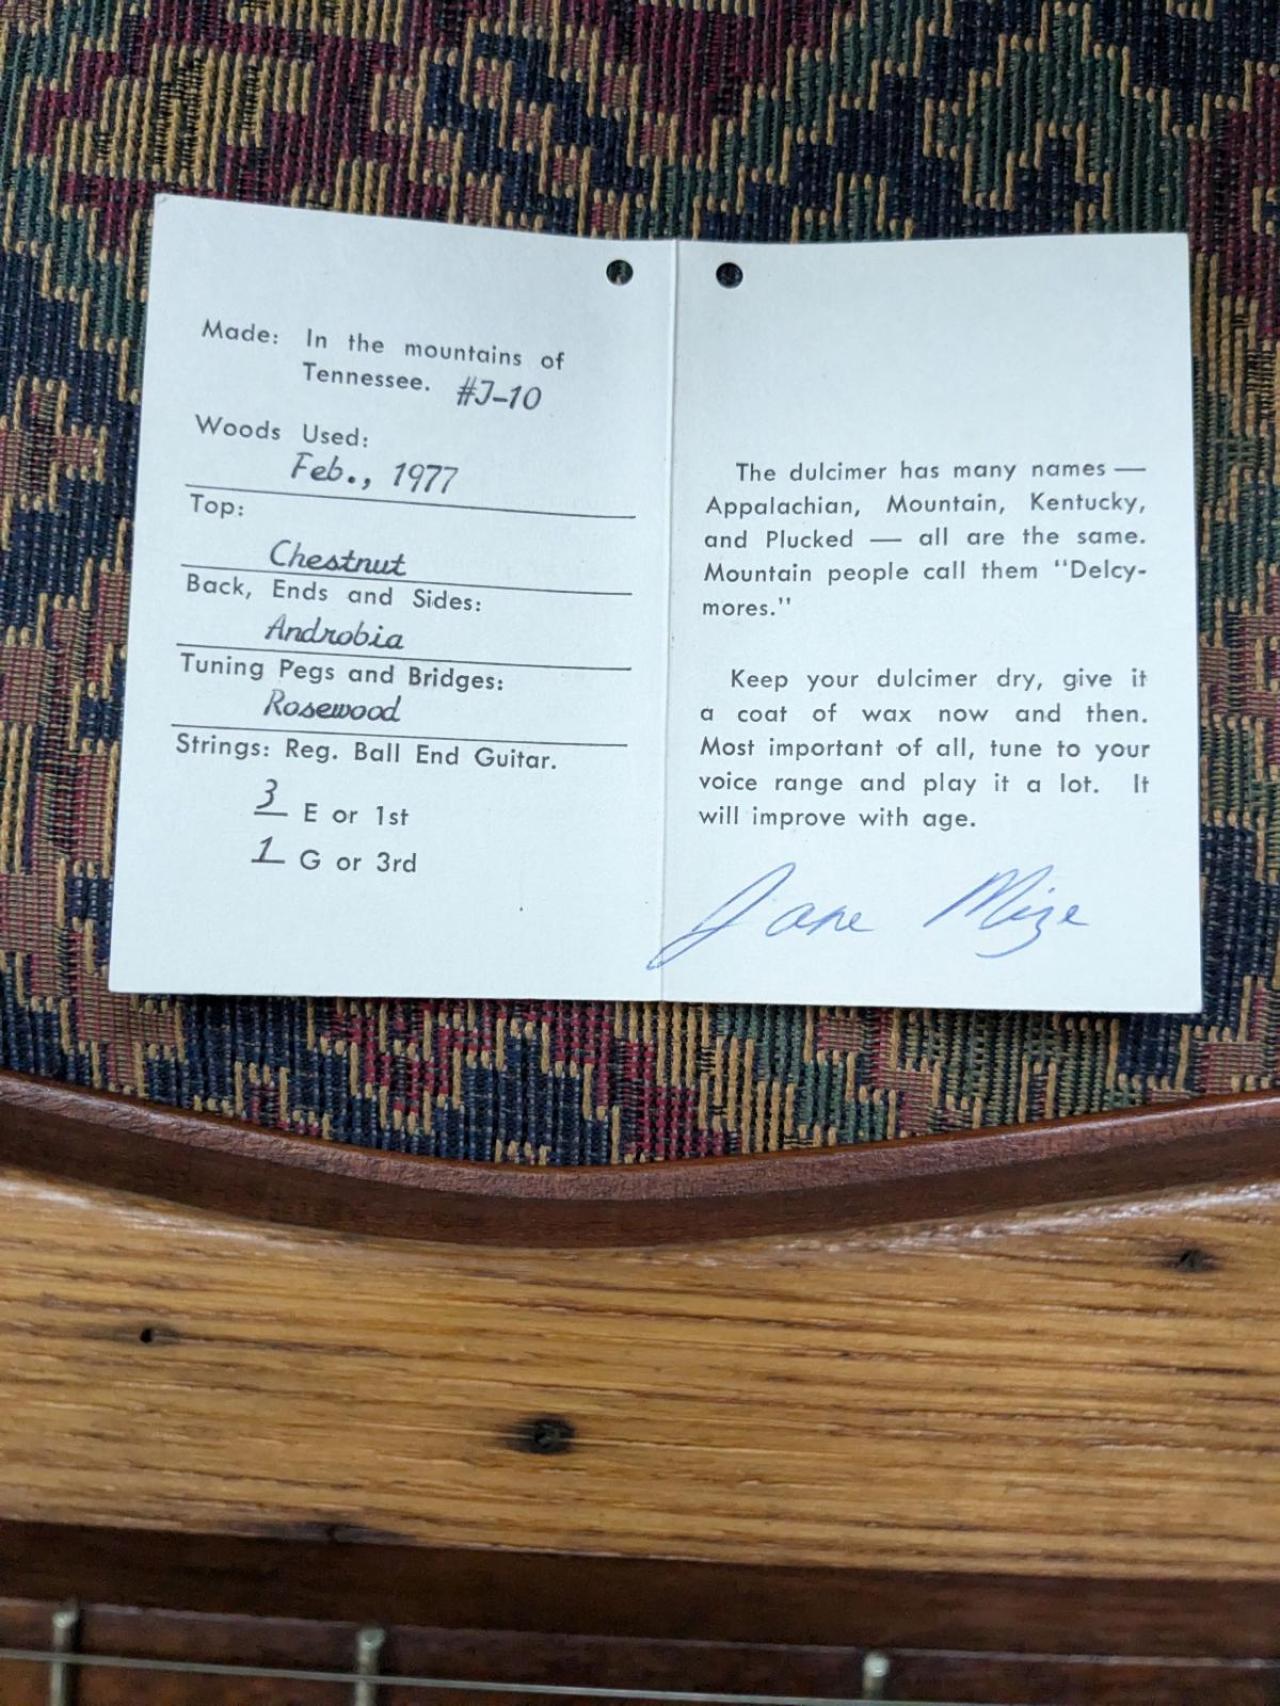 Made: In the mountains of
Tennessee. #J-10
Woods Used:
Feb., 1977
Top:
Chestnut
Back, Ends and Sides:
Androbia
Tuning Pegs and Bridges:
Rosewood
Strings: Reg. Ball End Guitar.
3 E or 1st
1 G or 3rd
The dulcimer has many names —
Appalachian, Mountain, Kentucky,
and Plucked — all are the same.
Mountain people call them "Delcy-
mores."
Keep your dulcimer dry, give it
a coat of wax now and then.
Most important of all, tune to your
voice range and play it a lot. It
will improve with age.
Jane Mize